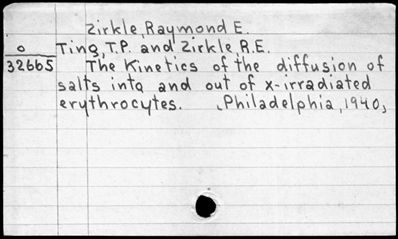 Zirkle, Raymond E.
O Ting, T.P. and Zirkle, R.E.
32665 The Kinetics of the diffusion of
salts into and out of x-irradiated
erythrocytes. Philadelphia, 1940,